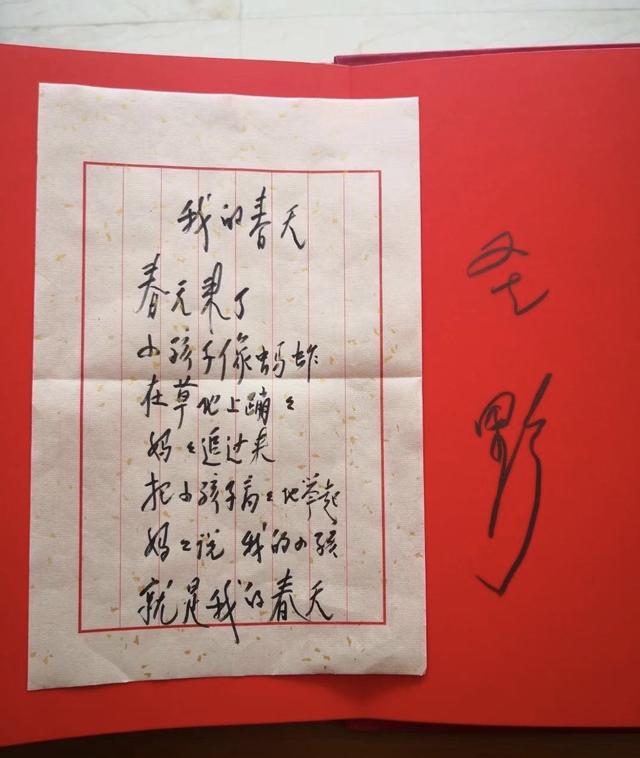 我的春天
春天来了
小孩子像蚂蚱
在草地上蹦々
妈々追过来
把小孩子高々地举起
妈々说 我的小孩
就是我的春天
圣野